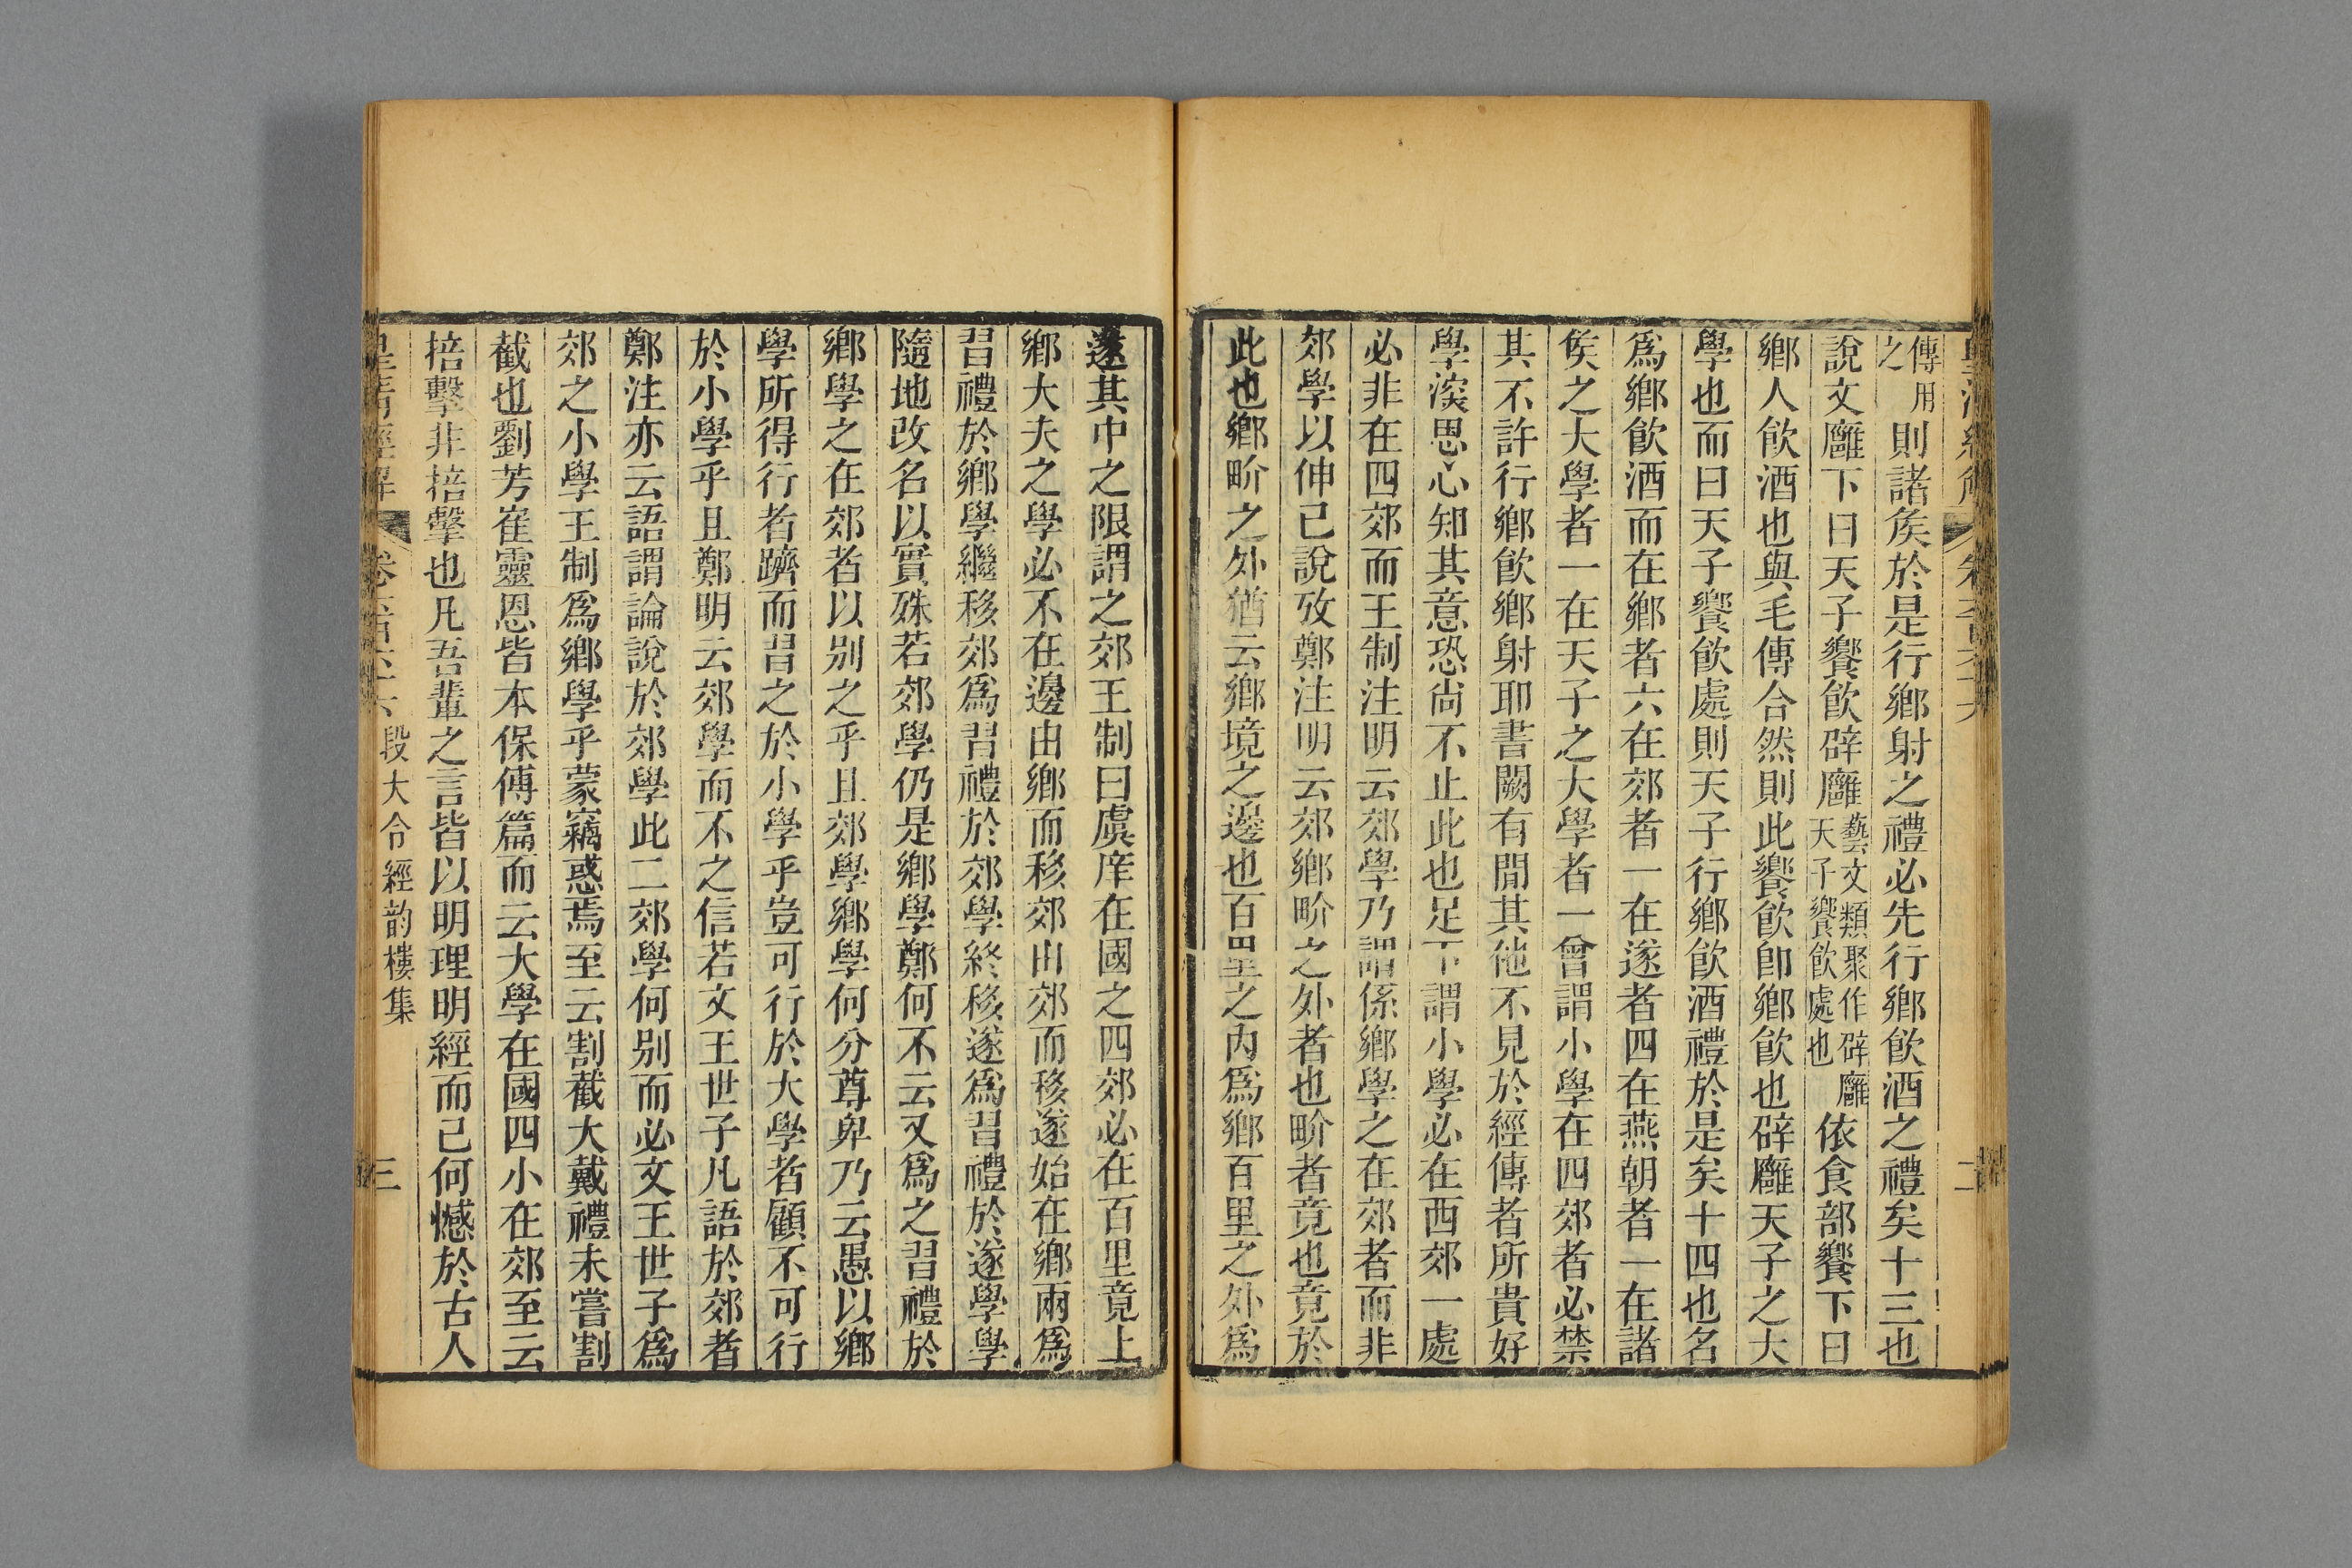 傳用
之
則諸矦於是行鄉射之禮必先行鄉飮酒之禮矣十三也
說文廱下曰天子饗飮辟廱
藝文類聚作辟廱
天子饗飮處也
依食部饗下曰
鄉人飮酒也與毛傳合然則此饗飮卽鄉飮也辟廱天子之大
學也而曰天子饗飮處則天子行鄉飮酒禮於是矣十四也名
爲鄉飮酒而在鄉者六在郊者一在遂者四在燕朝者一在諸
矦之大學者一在天子之大學者一曾謂小學在四郊者必禁
其不許行鄉飮鄉射耶書闕有閒其他不見於經傳者所貴好
學深思心知其意恐尙不止此也足下謂小學必在西郊一處
必非在四郊而王制注明云郊學乃謂係鄉學之在郊者而非
郊學以伸己說攷鄭注明云郊鄉畍之外者也畍者竟也竟於
此也鄉畍之外猶云鄉境之邊也百里之內爲鄉百里之外爲
遂其中之限謂之郊王制曰虞庠在國之四郊必在百里竟上
鄉大夫之學必不在邊由鄉而移郊由郊而移遂始在鄉兩爲
習禮於鄉學繼移郊爲習禮於郊學終移遂爲習禮於遂學學
隨地改名以實殊若郊學仍是鄉學鄭何不云又爲之習禮於
鄉學之在郊者以別之乎且郊學鄉學何分尊卑乃云愚以鄉
學所得行者躋而習之於小學乎豈可行於大學者顧不可行
於小學乎且鄭明云郊學而不之信若文王世子凡語於郊者
鄭注亦云語謂論說於郊學此二郊學何別而必文王世子爲
郊之小學王制爲鄉學乎蒙竊惑焉至云割截大戴禮未嘗割
截也劉芳崔靈恩皆本保傅篇而云大學在國四小在郊至云
掊擊非掊擊也凡吾輩之言皆以明理明經而已何憾於古人
皇淸經解
段大令經韵樓集
三